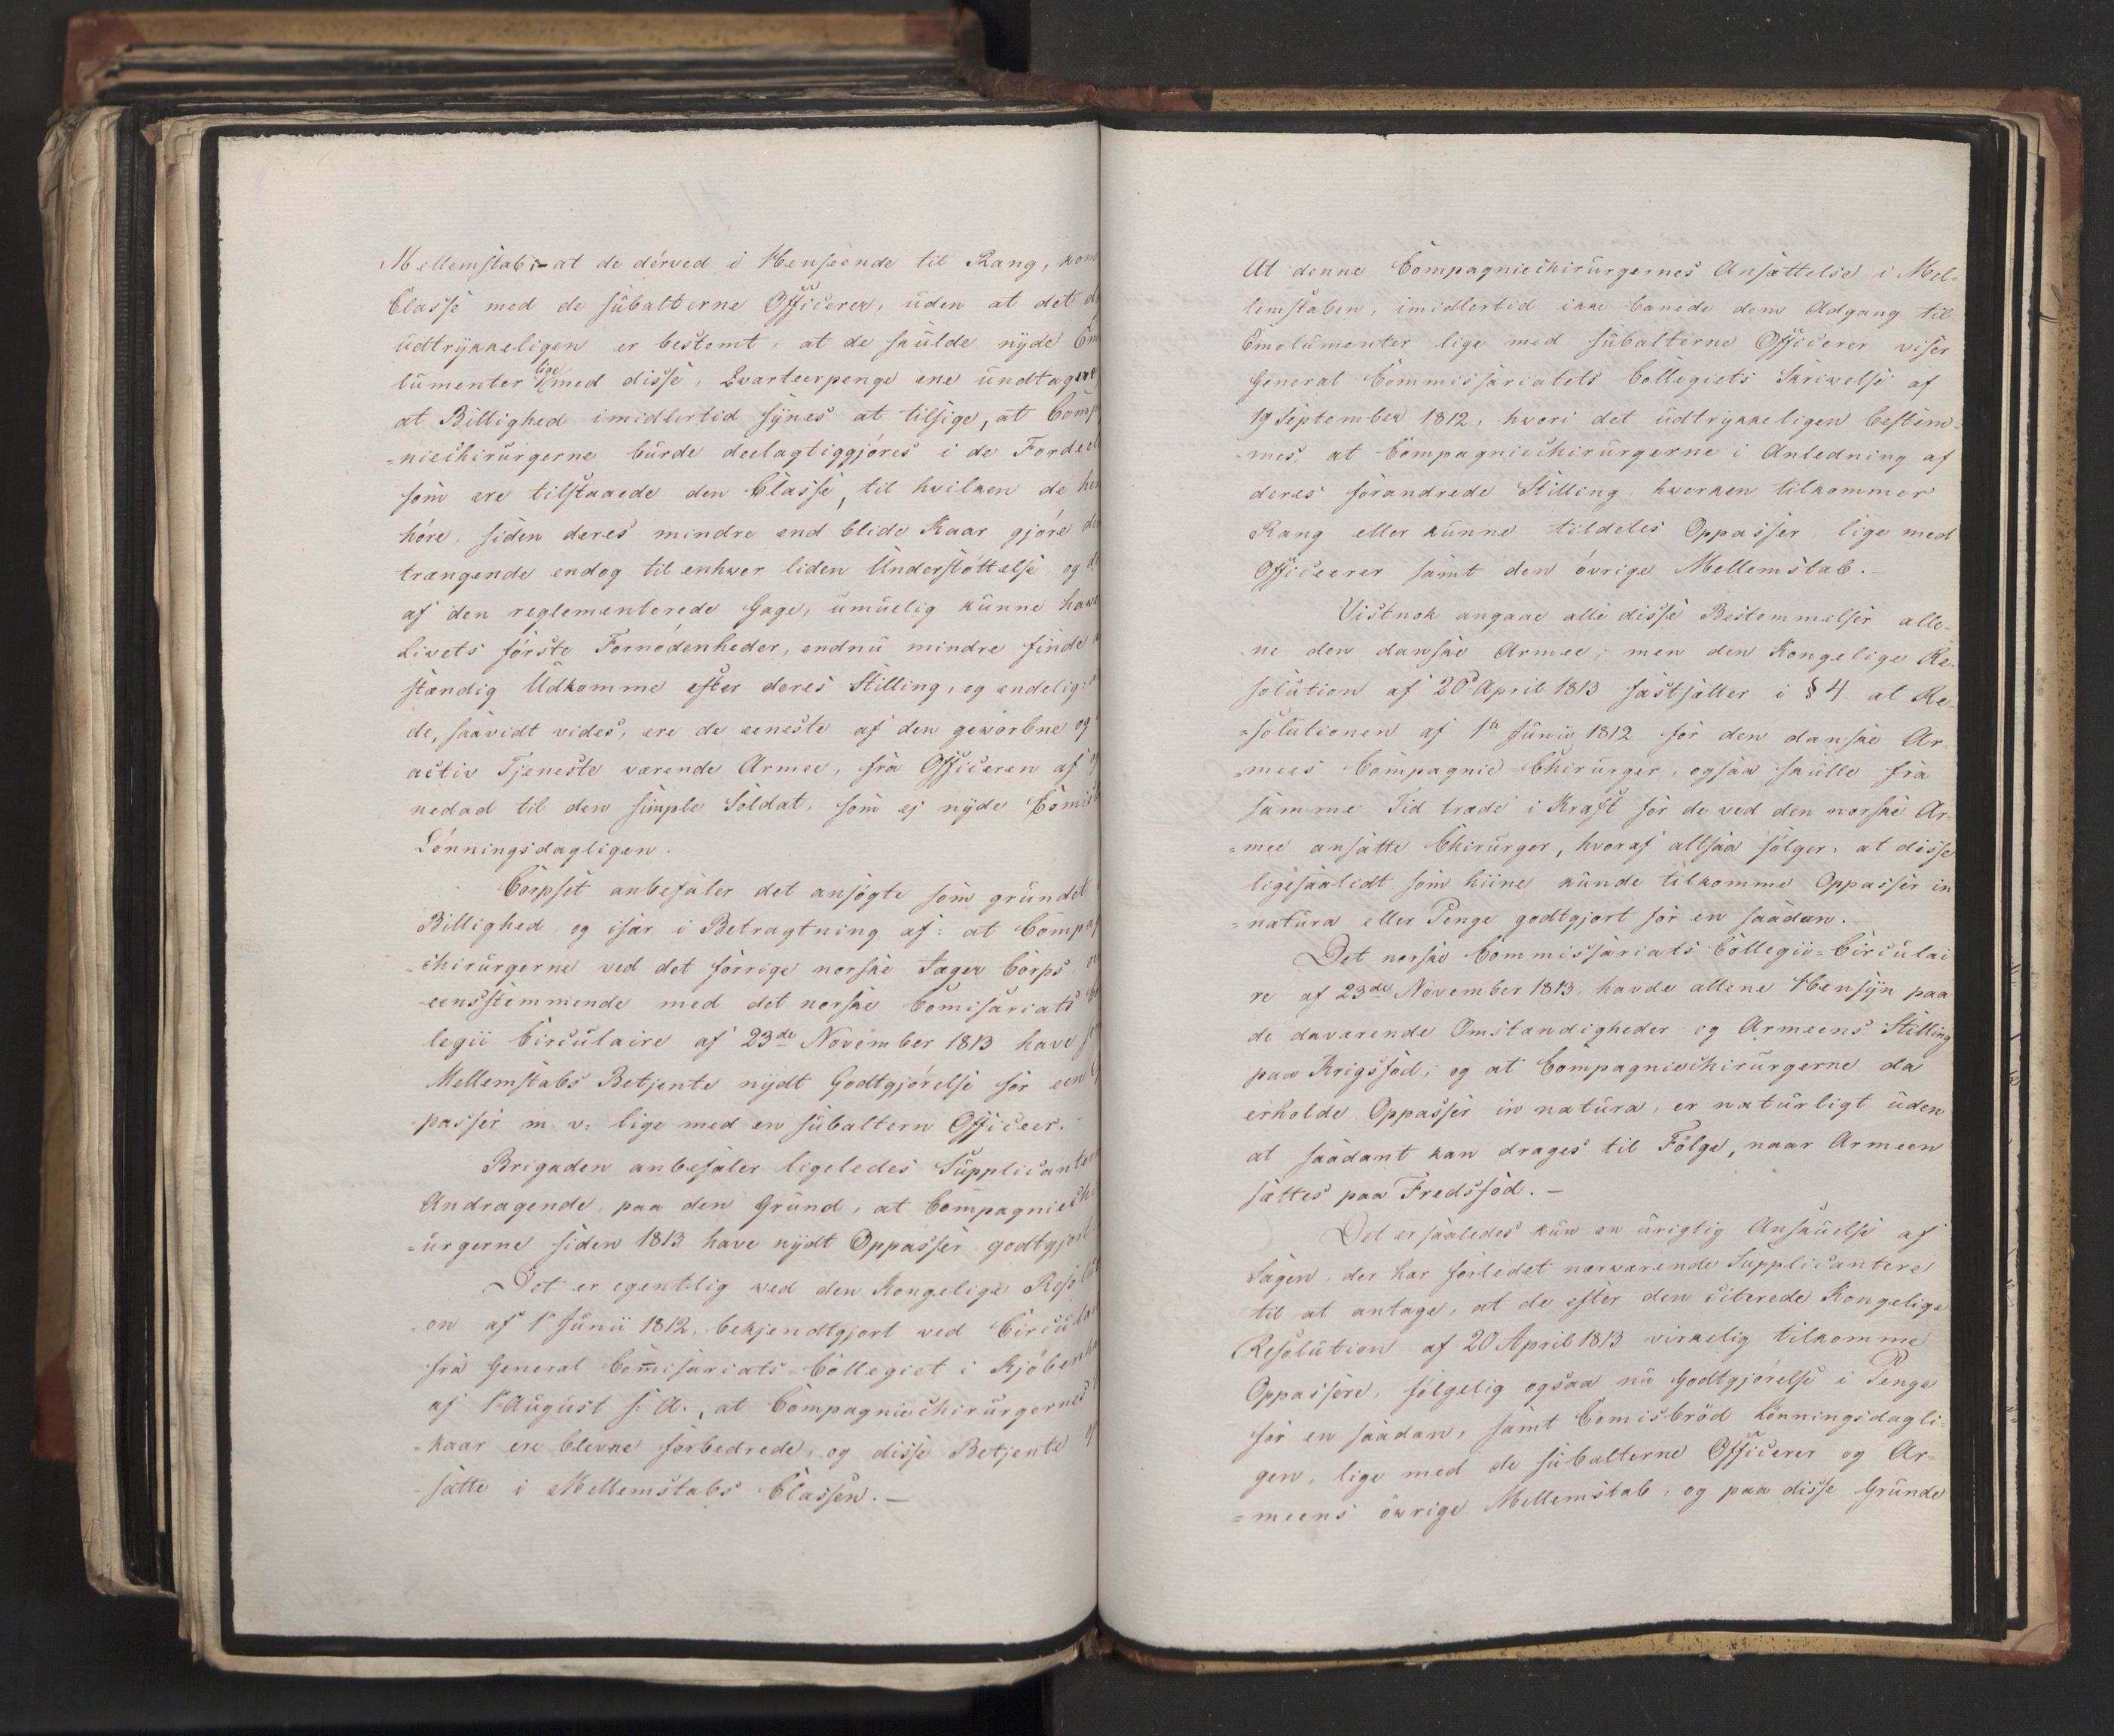 Mellemstab;- at de dérved i Henseende til Rang, kom
Classe med de subalterne Officerer, uden at det d
udtrykkeligen er bestemt, at de skulde nyde Em
lumenter lige med disse, Qvarteerpenge ene undtagne
at Billighed imidlertid synes at tilsige, at Comp
=niechirurgerne burde deelagtiggjøres i de Fordeel
som ere tilstaaede den Classe, til hvilken de hen
høre, siden deres mindre end blide Kaar gjøre de
trængende endog til enhver liden Understøttelse og de
af den reglementerede Gage, umuelig kunne have
Livets første Fornødenheder, endnu mindre finde
stændig Udkomme efter deres Stilling, og endelig:
de, saavidt vides, ere de eeneste af den gevorbne og
activ Tjeneste værende Armee, fra Officeren af
nedad til den simple Soldat, som ej nyde Comis
Lønningsdagligen.
Corpset anbefaler det ansøgte som grundet
Billighed og især i Betragtning af: at Compag
=chirurgerne ved det forrige norske Jæger Corps,
eensstemmende med det norske Comisariats
legii Circulaire af 23de November 1813 have
Mellemstabs Betjente nydt Godtgjørelse for een
passer m. v: lige med en subaltern Officeer.
Brigaden anbefaler ligeledes Supplicanter
Andragende, paa den Grund, at Compagniechi
=urgerne siden 1813 have nydt Oppasser godtgjort
Det er egentlig ved den Kongelige Resoluti
on af 1e Junii 1812, bekjendtgjort ved Circulai
fra General Comisariats-Collegiet i Kjøbenha
af 1e August s. A., at Compagniechirurgernes
kaar ere blevne forbedrede, og disse Betjente
satte i Mellemstabs Classen.-
At denne Compagniechirurgernes Ansættelse i Mel=
lemstaben, imidlertid ikke banede dem Adgang til
Emolumenter lige med subalterne Officerer viser
General Commissariatets Collegiets Skrivelse af
19 September 1812, hvori det udtrykkeligen bestem=
=mes, at Compagniechirurgerne i Anledning af
deres forandrede Stilling hverken tilkommer
Rang eller kunne tildeles Oppasser lige med
Officeerer samt den øvrige Mellemstab.-
Vistnok angaae alle disse Bestemmelser alle=
ne den danske Armee; men den Kongelige Re=
solution af 20de April 1813 fastsætter i § 4 at Re=
=solutionen af 1te Junii 1812 for den danske Ar
=mees Compagnie Chirurger, ogsaa skulle fra
samme Tid træde i Kraft for de ved den norske Ar=
=mee ansatte Chirurger, hvoraf altsaa følger: at disse
ligesaalidt som hiine kunde tilkomme Oppasser in
=natura eller Penge godtgjort for en saadan.-
Det norske Commissariats Collegii=Circulai
re af 23de November 1813 havde allene Hensyn paa
de daværende Omstændigheder og Armeens Stilling
paa Krigsfod; og at Compagniechirurgerne da
erholdt Oppasser in natura, er naturligt uden
at saadant kan drages til Følge, naar Armeen
sættes paa Fredsfod.-
Det er saaledes kun en urigtig Anskuelse af
Sagen, der har forledet nærværende Supplicantere
til at antage, at de efter den citerede Kongelige
Resolution af 20 April 1813 virkelig tilkomme
Oppassere, følgelig ogsaa nu Godtgjørelse i Penge
for en saadan, samt Comisbrød Lønningsdagli=
gen, lige med de subalterne Officerer og Ar=
=meens øvrige Mellemstab, og paa disse Grunde